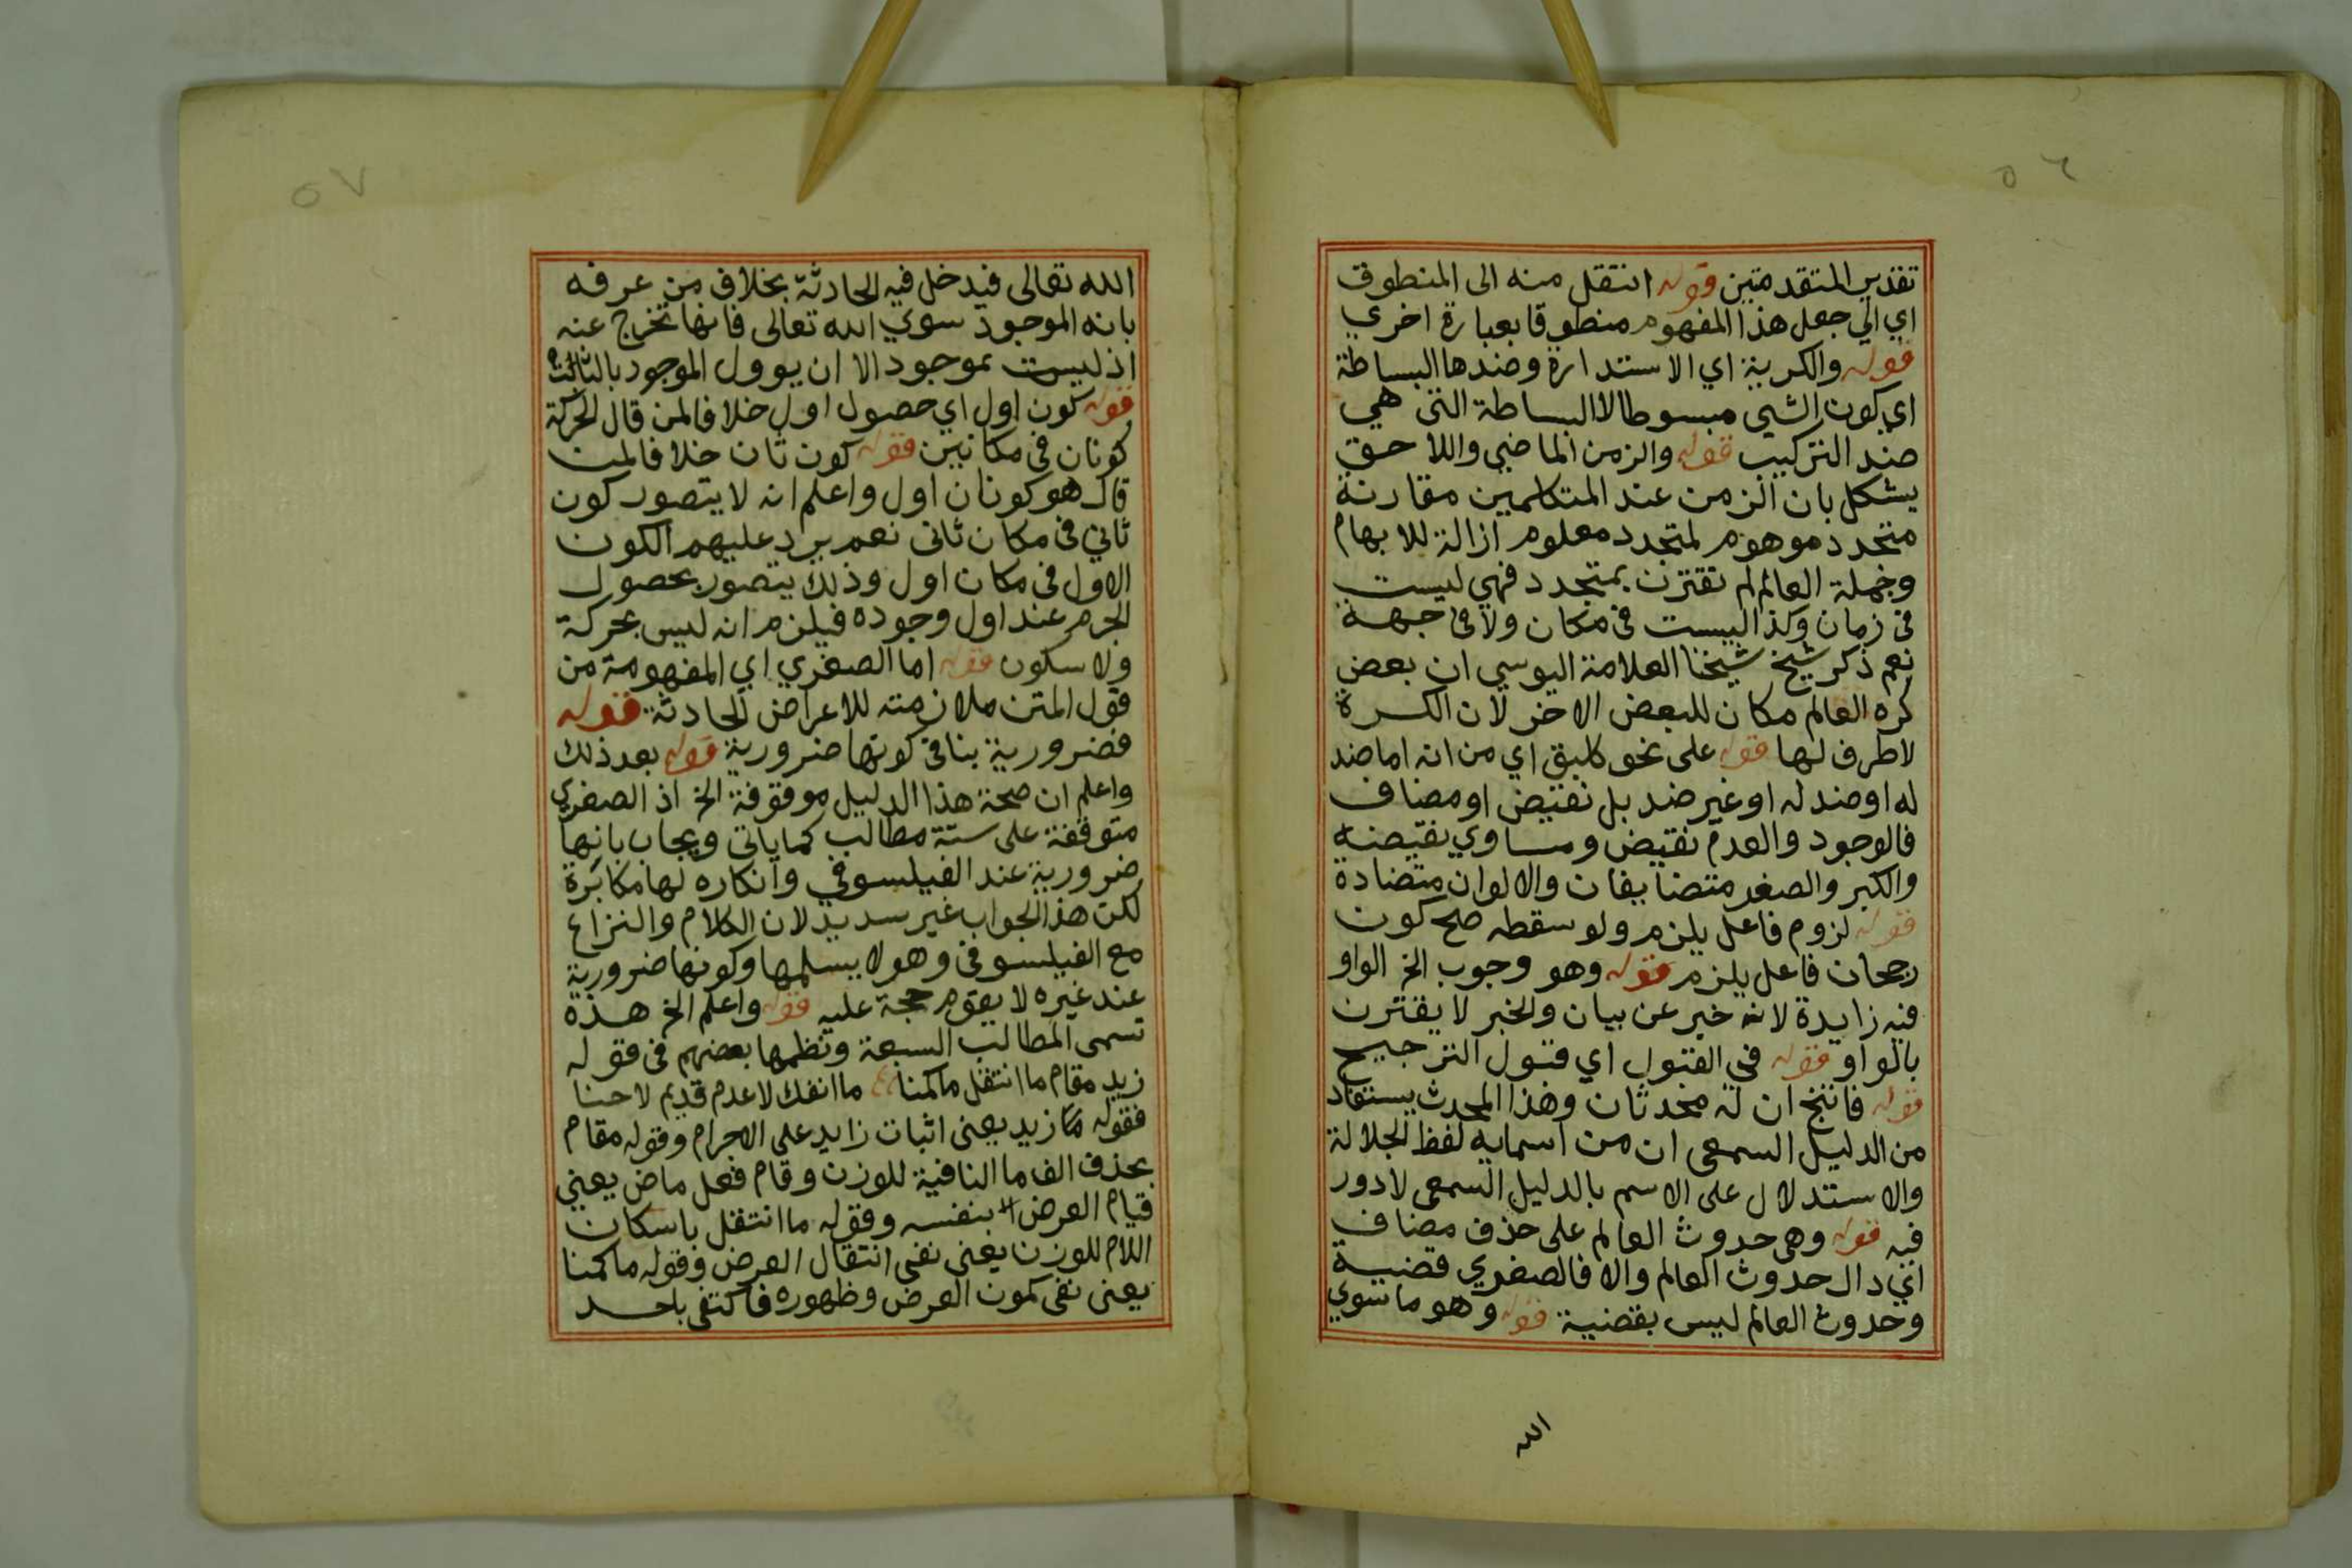 ٥٦
تقدير المتقدمتين قوله انتقل منه الى المنطوق
اي الي جعل هذا المفهوم منطوقا بعبارة اخري
قوله والكرية اي الاستدارة وضدها البساطة
اي كون الشي مبسوطا لا البساطة التي هي
ضد التركيب قوله والزمن الماضي واللاحق
يشكل بان الزمن عند المتكلمين مقارنة
متجدد موهوم لمتجدد معلوم ازالة للابهام
وجملة العالم لم تقترن بمتجدد فهي ليست
في زمان وكذا ليست في مكان ولا في جهة
نعم ذكر شيخ شيخنا العلامة اليوسي ان بعض
كره العالم مكان للبعض الاخر لان الكرة
لا طرف لها قوله على نحو كلبق اي من انه اما ضد
له او ضد له او غير ضد بل نقيض او مضاف
فالوجود والعدم نقيض ومساوي نقيضه
والكبر والصغر متضايفان والالوان متضادة
قوله لزوم فاعل يلزم ولو سقطه صح كون
رجحان فاعل يلزم قوله وهو وجوب الخ الواو
فيه زايدة لانه خبر عن بيان والخبر لا يقترن
بالواو قوله في القبول اي قبول الترجيح
قوله فانتج ان له محدثان وهذا المحدث يستفاد
من الدليل السمعي ان من اسمايه لفظ الجلالة
والاستدلال على الاسم بالدليل السمعي لا دور
فيه قوله وهي حدوث العالم على حذف مضاف
اي دال حدوث العالم والا فالصغري قضية
وحدوث العالم ليس بقضية قوله وهو ما سوي
الله
٥٧
الله تعالى فيدخل فيه الحادثة بخلاف من عرفه
بانه الموجود سوي الله تعالى فانها تخرج عنه
اذ ليست بموجود الا ان يوول الموجود بالثالث
قوله كون اول اي حصول اول خلافا لمن قال الحركة
كونان في مكانين قوله كون ثان خلافا لمن
قال هو كونان اول واعلم انه لا يتصور كون
ثاني في مكان ثاني نعم يرد عليهم الكون
الاول في مكان اول وذلك يتصور بحصول
الجرم عند اول وجوده فيلزم انه ليس بحركة
ولا سكون قوله اما الصغري اي المفهومة من
قول المتن ملازمته للاعراض الحادثة قوله
فضرورية ينافي كونها ضرورية قوله بعد ذلك
واعلم ان صحة هذا الدليل موقوفة الخ اذ الصغري
متوقفة على ستة مطالب كما ياتي ويجاب بانها
ضرورية عند الفيلسوفي وانكاره لها مكابرة
لكن هذا الجواب غير سديد لان الكلام والنزاع
مع الفيلسوفي وهو لا يسلمها وكونها ضرورية
عند غيره لا يقوم حجة عليه قوله واعلم الخ هذه
تسمى المطالب السبعة ونظمها بعضهم في قوله
زيد مقام ما انتقل ما كمنا ما انفك لا عدم قديم لا حنا
فقوله زيد يعني اثبات زايد على الاجرام وقوله مقام
بحذف الف ما النافية للوزن وقام فعل ماض يعني
قيام العرض بنفسه وقوله ما انتقل باسكان
اللام للوزن يعني نفي انتقال العرض وقوله ما كمنا
يعني نفي كمون العرض وظهوره فاكتفى باحد